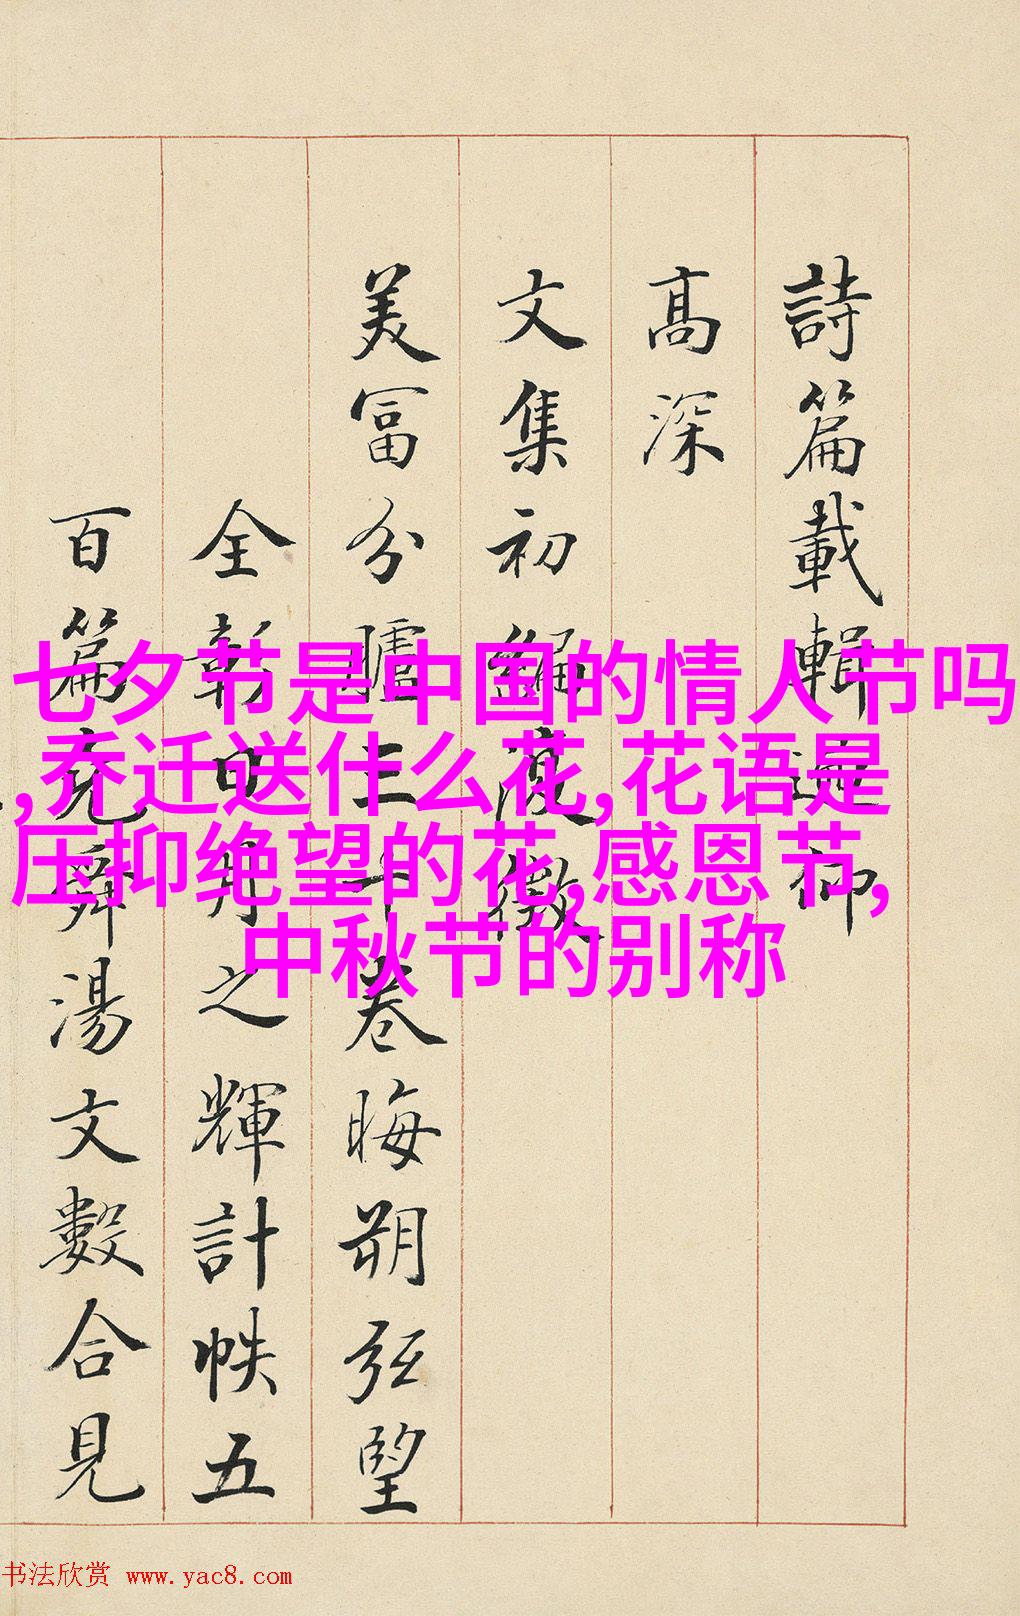 詩篇載輯
高深
文集初編
美富分臚三十卷晦朔弦望
全彰日月之輝計帙五
百篇堯舜湯文數合見
七夕节是中国的情人节吗
,乔迁送什么花,花语是
压抑绝望的花,感恩节,
中秋节的别称
书法欣赏 www.yac8.com